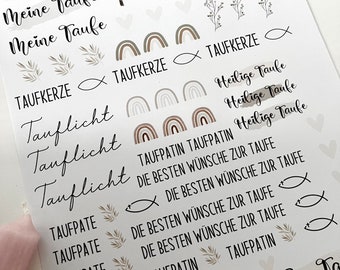 Meine Taufe
Meine Taufe
TAUFKERZE TAUFKERZE TAUFKERZE
Tauflicht
Heilige Taufe
Heilige Taufe
Heilige Taufe
Tauflicht
Tauflicht
TAUFPATIN TAUFPATIN
DIE BESTEN WÜNSCHE ZUR TAUFE
DIE BESTEN WÜNSCHE ZUR TAUFE
DIE BESTEN WÜNSCHE ZUR TAUFE
TAUFPATE DIE BESTEN WÜNSCHE ZUR TAUFE
TAUFPATE TAUFPATIN TAUFPATIN
TAUFPATE